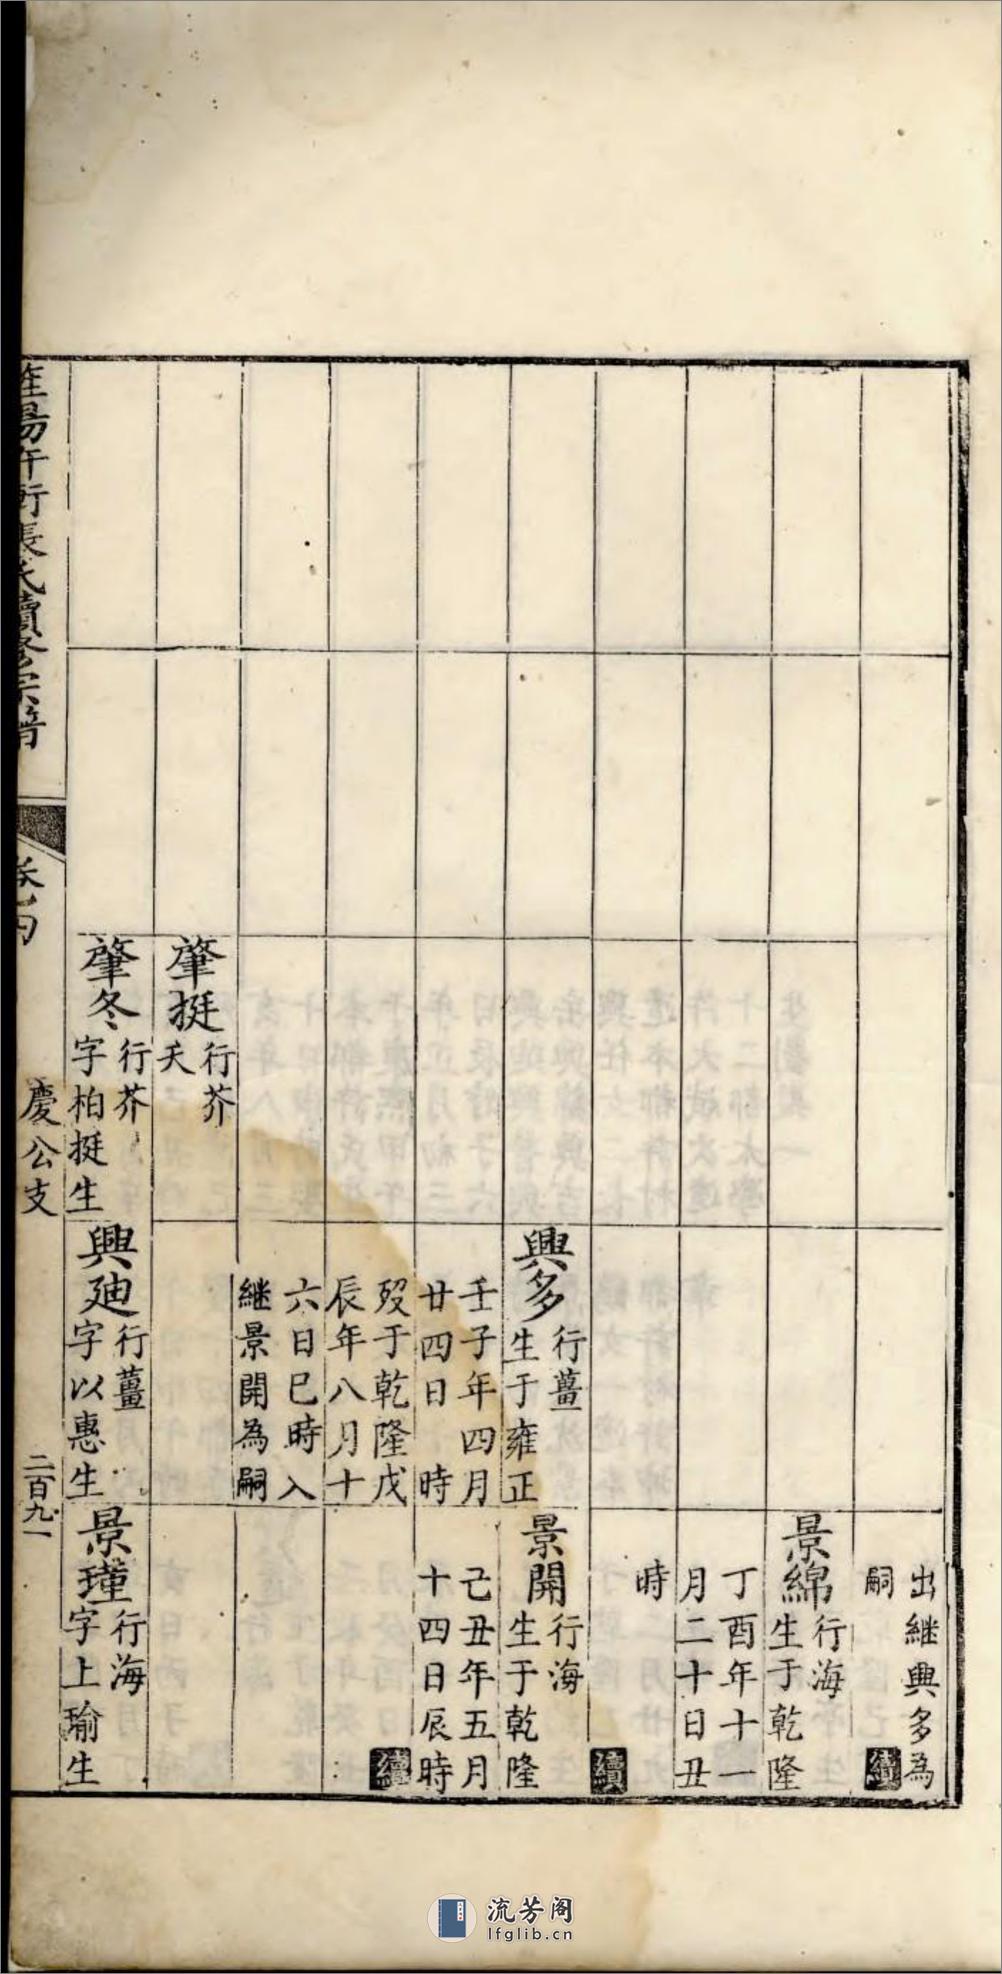 出継興多為
嗣
續
景綿
行海
生于乾隆
丁酉年十一
月二十日丑
時
續
興多
行薑
生于雍正
壬子年四月
廿四日 時
歿于乾隆戊
辰年八月十
六日巳時入
継景開為嗣
景開
行海
生于乾隆
己丑年五月
十四日辰時
續
肇挺
行芥
夭
肇冬
行芥
字柏挺生
興廸
行薑
字以惠生
景瑾
行海
字上瑜生
張氏續修宗譜
慶公支
二百九一
流芳阁
lfglib.cn